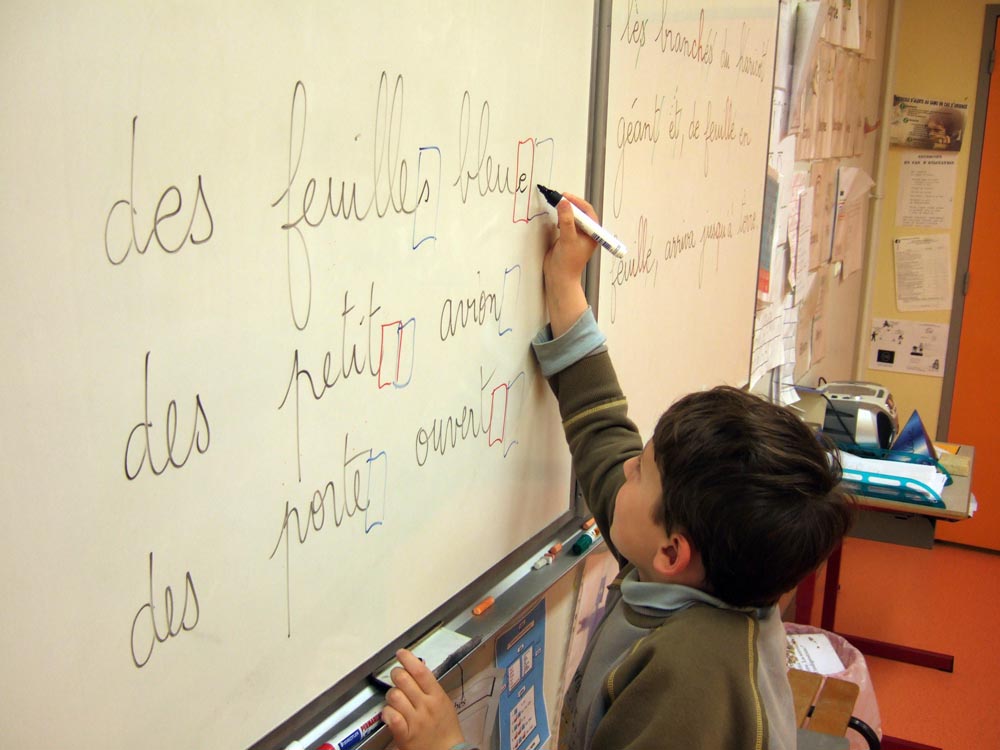 des feuilles bleue
des petit avion
des porte ouvert
les branches du haricot
géant et, de feuille en
feuille, arriva jusqu'à terre